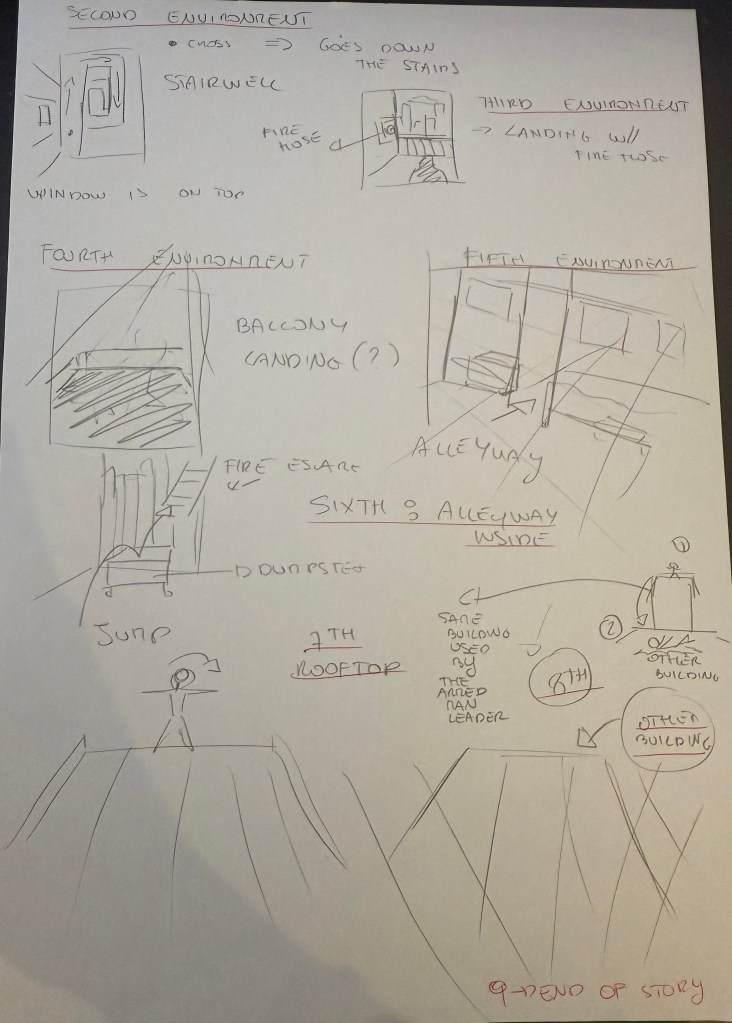 SECOND ENVIRONMENT
• CROSS ⇒ GOES DOWN
THE STAIRS
STAIRWELL
WINDOW IS ON TOP
THIRD ENVIRONMENT
→ LANDING W/
FIRE HOSE
FIRE
HOSE
FOURTH ENVIRONMENT
BALCONY
LANDING (?)
FIFTH ENVIRONMENT
ALLEYWAY
FIRE ESCAPE
DUMPSTER
JUMP
SIXTH : ALLEYWAY
INSIDE
7TH
ROOFTOP
1
2
OTHER
BUILDING
SAME
BUILDING
USED
BY
THE
ARMED
MAN
LEADER
8TH
OTHER
BUILDING
9→ END OF STORY